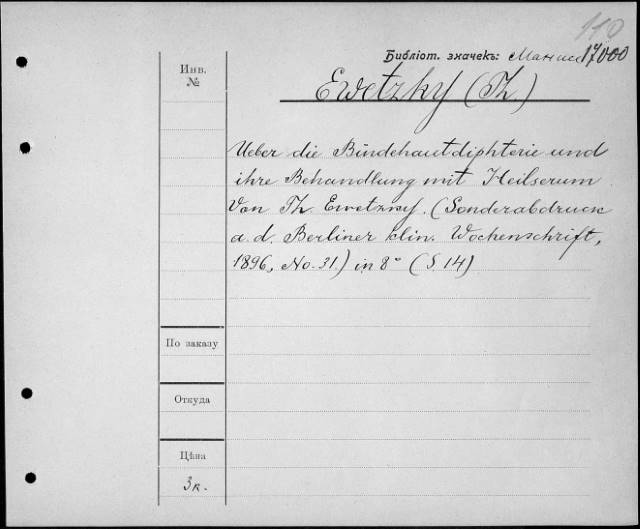 110
Библіот. значекъ: 17000
Инв.
№
Ewetzky (Th.)
Ueber die Bindehautdiphterie und
ihre Behandlung mit Heilserum
Von Th. Ewetzky. (Sonderabdruck
a. d. Berliner klin. Wochenschrift,
1896, No. 31.) in 8° (S 14)
По заказу
Откуда
Цѣна
3 к.